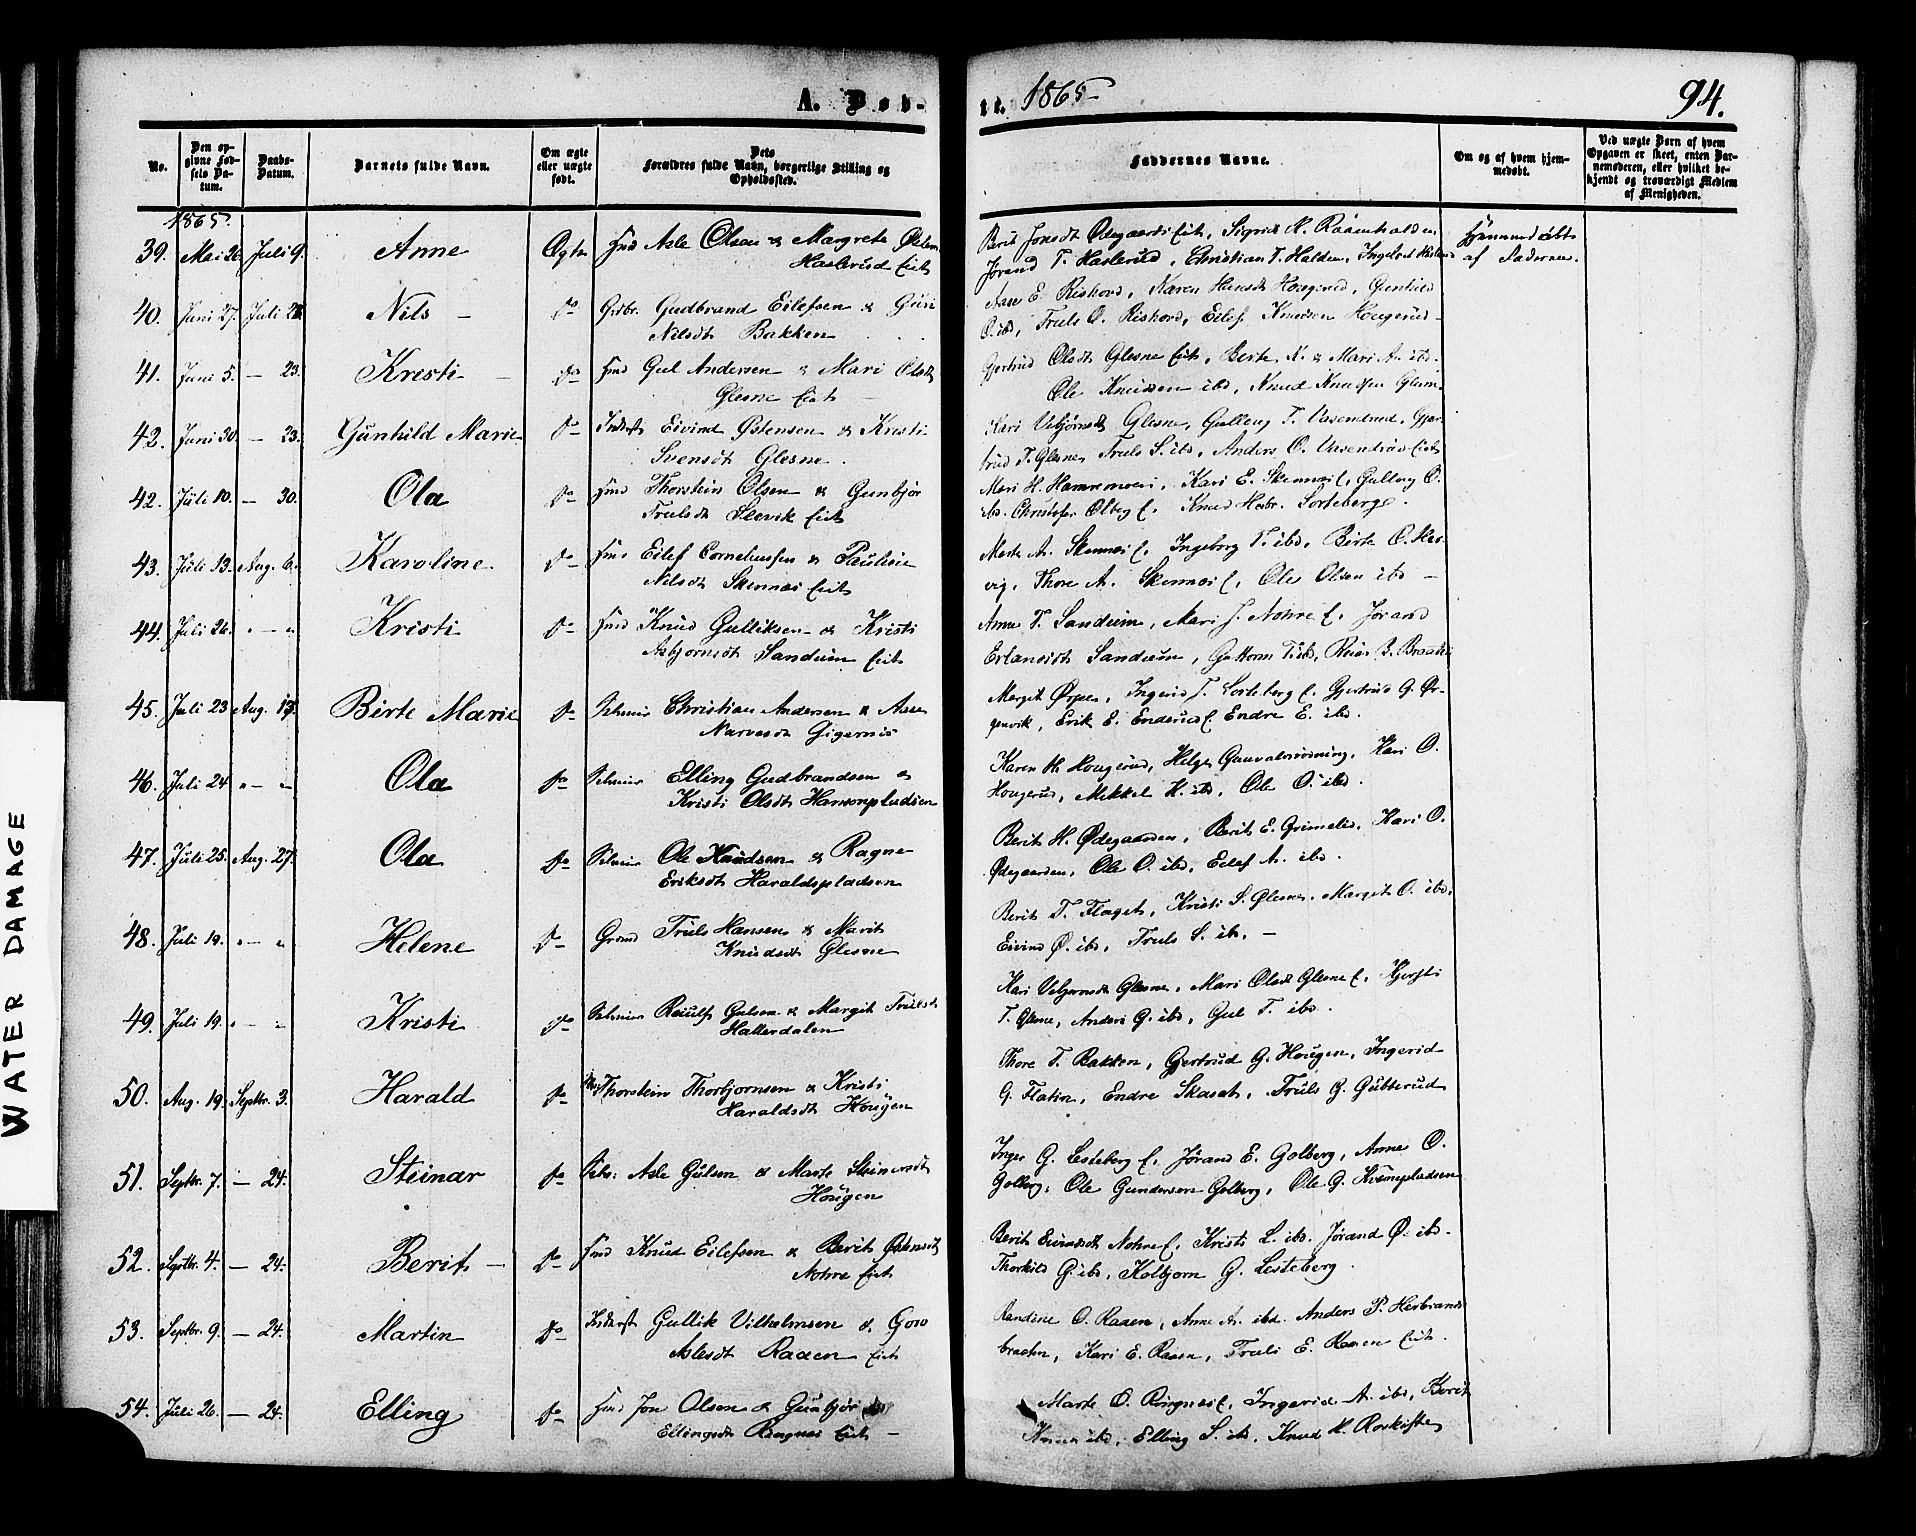 A. Døb-
te. 1865-
94.
No.
Den op-
givne Fød-
sels Da-
tum.
Daabs-
Datum.
Barnets fulde Navn.
Om ægte
eller uægte
født.
Dets
Forældres fulde Navn, borgerlige Stilling og
Opholdssted.
Faddernes Navne.
Om og af hvem hjem-
medøbt.
Ved uægte Børn af hvem
Opgaven er skeet, enten Bar-
nemoderen, eller hvilket be-
kjendt og troværdigt Medlem
af Menigheden.
1865.
39. Mai 26. Juli 9. Anne Ægte Asle Olsen & Margrete
Haslerud Eie
Berit Ødegaards Eie, Sigrid
Jørand T. Haslerud, Christian T. Halden,
Hjemmedøbt
af Faderen.
40. Juni 27. Juli Nils - Do Gudbrand Eilefsen & Guri
Nilsdt Bakken
Aase E. Riskord, Karen Hougerud, Gunhild
O. ibd, Truls O. Riskord, Eilef Knudsen Hougerud-
41. Juni 5. - 23. Kristi - Do Gul Andersen & Mari Olsdt
Glesne Eie
Gjertrud Olsdt Glesne Eie, Berte K. & Mari A. ibd.
Ole Knudsen ibd, Knud Knudsen
42. Juni 30 - 23. Gunhild Marie Do Inderst Eivind Østensen & Kristi
Svensdt Glesne.
Kari Vebjørnsdt Glesne, Gulleug T. Vasendrud, Gjer-
trud T. Glesne, Truls S. ibd, Anders O.
42. Juli 10. - 30. Ola Do Thorstein Olsen & Gunbjør
Trulsdt Slevik Eie
Mari H. Hamremoen, Kari E. Skinnes E, Gulleug O.
ibd. Christofer Olberg E. Knud Sorteberge.
43. Juli 13. Aug. 6. Karoline Do Eilef Corneliussen & Pauline
Nilsdt Skinnes Eie
Marte A. Skinnes E, Ingeborg T. ibd, Birte O.
vig, Thore A. Skinnes E, Ole Olsen ibd -
44. Juli 26. " - " Kristi Do Knud Gulliksen & Kristi
Asbjørnsdt Sandum Eie
Anne T. Sandum, Mari J. Nohre E. Jørand
Erlandsdt Sandum, Guttorm T. ibd,
45. Juli 23 Aug. 13. Birte Marie Do Selveier Christian Andersen & Aase
Narvesdt Gigernes
Margit Ingerid T. Sorteberg E. Gjertrud G. Ør-
genvik, Erik E. Enderud E. Endre E. ibd.
46. Juli 24 " - " Ola Do Selveier Elling Gudbrandsen &
Kristi Olsdt Hansenpladsen
Karen H. Hougerud, Helge Kari O.
Hougerud, Mikkel H. ibd, Ole O. ibd.
47. Juli 25. Aug. 27. Ola Do Selveier Ole Knudsen & Ragne
Eriksdt Haraldspladsen
Berit H. Ødegaarden, Berit E. Grimelid, Kari O.
Ødegaarden, Ole O. ibd, Eilef A. ibd.
48. Juli 19. " - " Helene Do Grmd Truls Hansen & Marit
Knudsdt Glesne
Berit T. Flaget, Kristi S. Glesne. Margit O. ibd,
Eivind Ø. ibd, Truls S. ib. -
49. Juli 19. " - " Kristi Do Selveier Gulsen & Margit Trulsdt
Hallerdalen
Kari Vebjørnsdt Glesne, Mari Olsdt Glesne E. Kjersti
T. Glesne, Anders G. ibd, Gul T. ibd.
50. Aug. 19. Septbr. 3. Harald Do Thorstein Thorbjørnsen & Kristi
Haraldsdt Hougen
Thore T. Bakken, Gjertrud G. Hougen, Ingerid
G. Flatin, Endre Skasat, Truls G. Gubberud
51. Septbr. 7. - 24. Steinar Do Asle Gulsen & Marte Steinarsdt
Hougen
Inger G. Lesteberg E. Jørand E. Golberg, Anne O.
Golberg, Ole Gundersen Golberg, Ole G. Kvernpladsen
52. Septbr. 4. - 24. Berit - Do Knud Eilefsen & Berit Østensdt
Nohre Eie
Berit Eivindsdt Nohre E. Kristi L. ibd. Jørand Ø. ibd-
Thorkild G. ibd, Kolbjørn G. Lesteberg.
53. Septbr. 9. - 24. Martin Do Inderst Gullik Vilhelmsen & Goro
Aslesdt Raaen Eie
Randine O. Raaen, Anne A. ibd. Anders P. Herbrands-
braaten, Kari E. Raaen, Truls E. Raaen Eie.
54. Juli 26. - 24. Elling Do Jon Olsen & Gunbjør
Ellingsdt Ringnes Eie -
Marte O. Ringnes E, Ingerid A. ibd, Berit
ibd, Elling S. ibd. Knud H. Roskifte
WATER DAMAGE